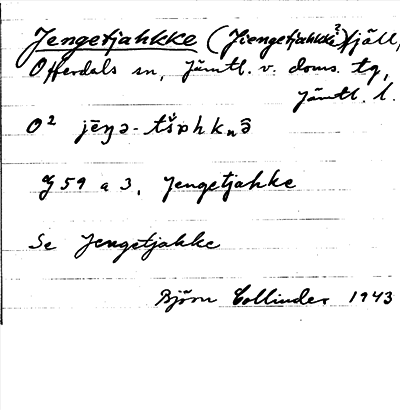 Jengetjahkke (Jiengetjahkke?) fjäll,
Offerdals sn, Jämtl. v. doms. tg,
Jämtl. l.
O² jēŋə-tšɒhkₙə̂
J 59 a 3, Jengetjahke
Se Jengetjakke
Björn Collinder 1943